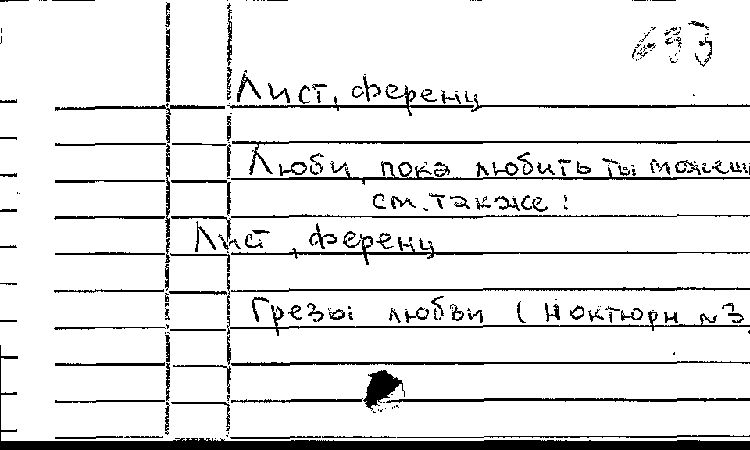 693
Лист, Ференц
Люби, пока любить ты можешь
см. также:
Лист, Ференц
Грезы любви (Ноктюрн №3)